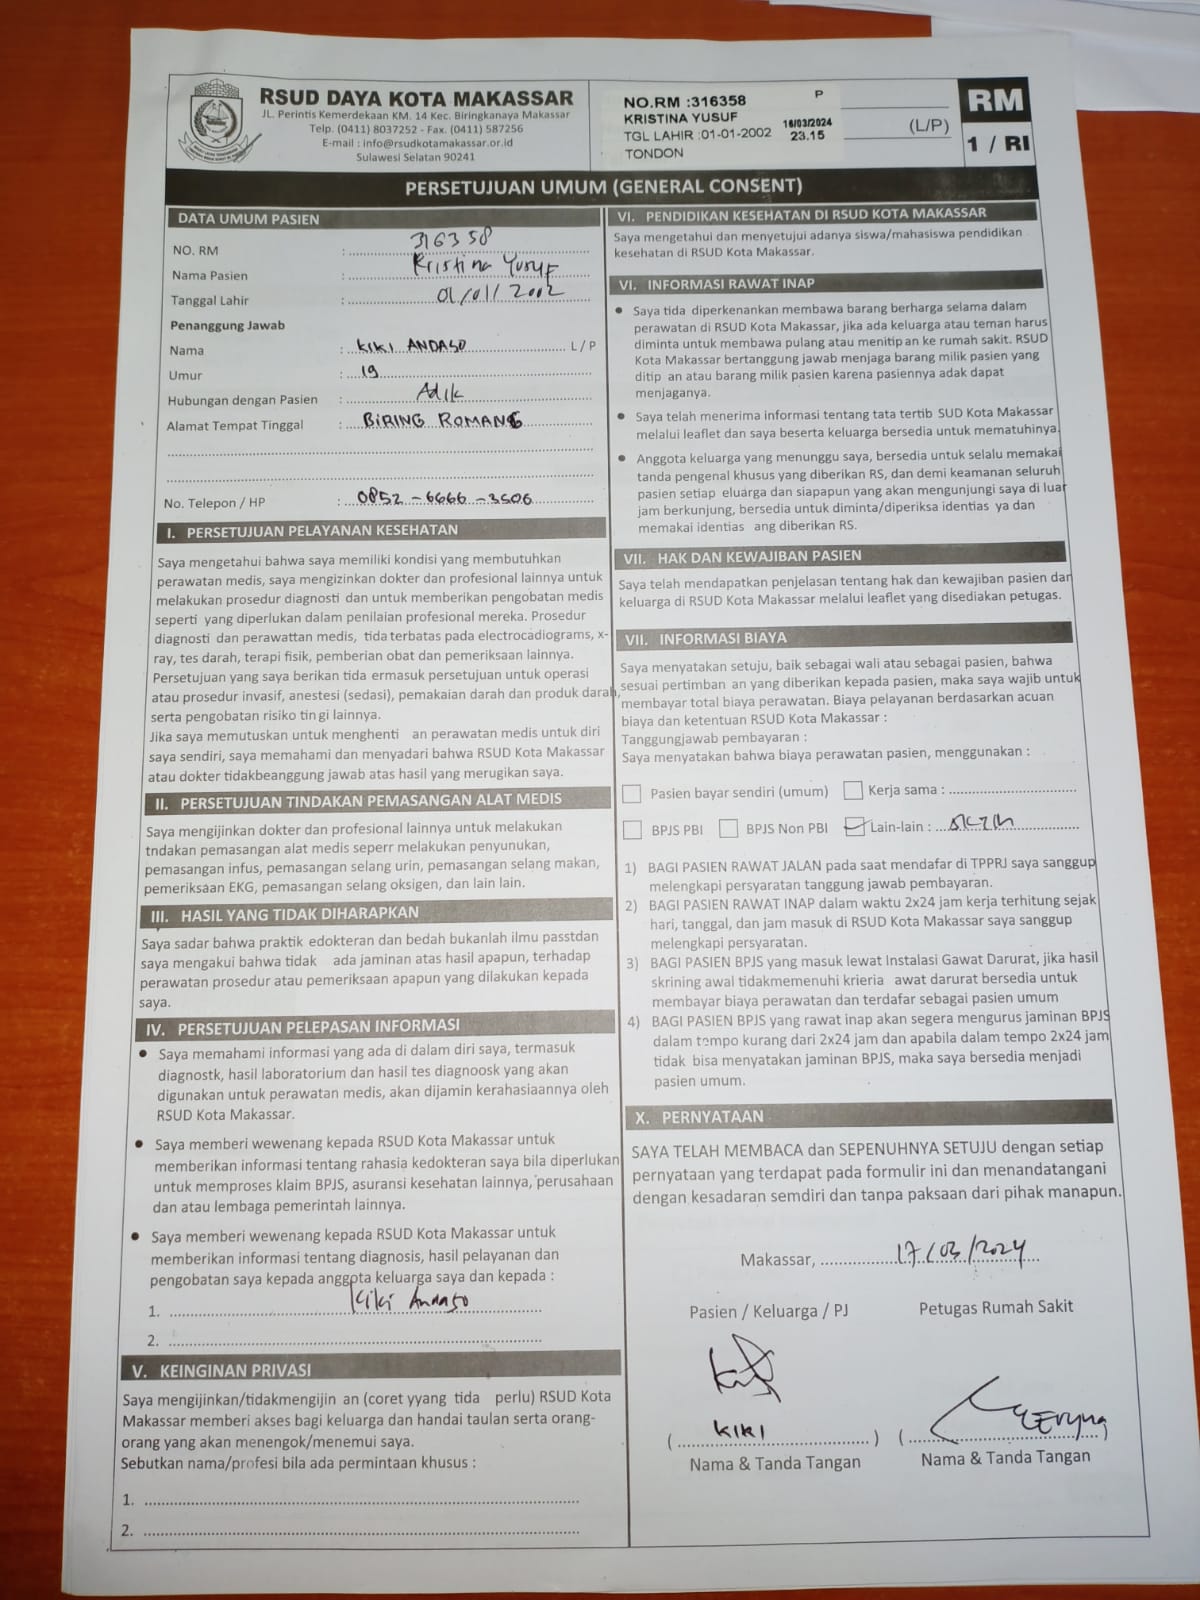 RSUD DAYA KOTA MAKASSAR
JL. Perintis Kemerdekaan KM. 14 Kec. Biringkanaya Makassar
Telp. (0411) 8037252 - Fax. (0411) 587256
E-mail : info@rsudkotamakassar.or.id
Sulawesi Selatan 90241
NO.RM :316358 P
KRISTINA YUSUF 16/03/2024
TGL LAHIR :01-01-2002 23.15
TONDON
(L/P)
RM
1 / RI
PERSETUJUAN UMUM (GENERAL CONSENT)
DATA UMUM PASIEN
NO. RM : 316358
Nama Pasien : Kristina Yusuf
Tanggal Lahir : 01/01/2002
Penanggung Jawab
Nama : KIKI ANDASO L / P
Umur : 19
Hubungan dengan Pasien : Adik
Alamat Tempat Tinggal : BIRING ROMANG
No. Telepon / HP : 0852-6666-3506
I. PERSETUJUAN PELAYANAN KESEHATAN
Saya mengetahui bahwa saya memiliki kondisi yang membutuhkan
perawatan medis, saya mengizinkan dokter dan profesional lainnya untuk
melakukan prosedur diagnosti dan untuk memberikan pengobatan medis
seperti yang diperlukan dalam penilaian profesional mereka. Prosedur
diagnosti dan perawattan medis, tida terbatas pada electrocadiograms, x-
ray, tes darah, terapi fisik, pemberian obat dan pemeriksaan lainnya.
Persetujuan yang saya berikan tida ermasuk persetujuan untuk operasi
atau prosedur invasif, anestesi (sedasi), pemakaian darah dan produk darah,
serta pengobatan risiko tin gi lainnya.
Jika saya memutuskan untuk menghenti an perawatan medis untuk diri
saya sendiri, saya memahami dan menyadari bahwa RSUD Kota Makassar
atau dokter tidakbeanggung jawab atas hasil yang merugikan saya.
II. PERSETUJUAN TINDAKAN PEMASANGAN ALAT MEDIS
Saya mengijinkan dokter dan profesional lainnya untuk melakukan
tndakan pemasangan alat medis seperr melakukan penyunukan,
pemasangan infus, pemasangan selang urin, pemasangan selang makan,
pemeriksaan EKG, pemasangan selang oksigen, dan lain lain.
III. HASIL YANG TIDAK DIHARAPKAN
Saya sadar bahwa praktik edokteran dan bedah bukanlah ilmu passtdan
saya mengakui bahwa tidak ada jaminan atas hasil apapun, terhadap
perawatan prosedur atau pemeriksaan apapun yang dilakukan kepada
saya.
IV. PERSETUJUAN PELEPASAN INFORMASI
• Saya memahami informasi yang ada di dalam diri saya, termasuk
diagnostk, hasil laboratorium dan hasil tes diagnoosk yang akan
digunakan untuk perawatan medis, akan dijamin kerahasiaannya oleh
RSUD Kota Makassar.
• Saya memberi wewenang kepada RSUD Kota Makassar untuk
memberikan informasi tentang rahasia kedokteran saya bila diperlukan
untuk memproses klaim BPJS, asuransi kesehatan lainnya, perusahaan
dan atau lembaga pemerintah lainnya.
• Saya memberi wewenang kepada RSUD Kota Makassar untuk
memberikan informasi tentang diagnosis, hasil pelayanan dan
pengobatan saya kepada anggota keluarga saya dan kepada :
1. Kiki Andaso
2.
V. KEINGINAN PRIVASI
Saya mengijinkan/tidakmengijin an (coret yyang tida perlu) RSUD Kota
Makassar memberi akses bagi keluarga dan handai taulan serta orang-
orang yang akan menengok/menemui saya.
Sebutkan nama/profesi bila ada permintaan khusus :
1.
2.
VI. PENDIDIKAN KESEHATAN DI RSUD KOTA MAKASSAR
Saya mengetahui dan menyetujui adanya siswa/mahasiswa pendidikan
kesehatan di RSUD Kota Makassar.
VI. INFORMASI RAWAT INAP
• Saya tida diperkenankan membawa barang berharga selama dalam
perawatan di RSUD Kota Makassar, jika ada keluarga atau teman harus
diminta untuk membawa pulang atau menitip an ke rumah sakit. RSUD
Kota Makassar bertanggung jawab menjaga barang milik pasien yang
ditip an atau barang milik pasien karena pasiennya adak dapat
menjaganya.
• Saya telah menerima informasi tentang tata tertib SUD Kota Makassar
melalui leaflet dan saya beserta keluarga bersedia untuk mematuhinya.
• Anggota keluarga yang menunggu saya, bersedia untuk selalu memakai
tanda pengenal khusus yang diberikan RS, dan demi keamanan seluruh
pasien setiap eluarga dan siapapun yang akan mengunjungi saya di luar
jam berkunjung, bersedia untuk diminta/diperiksa identias ya dan
memakai identias ang diberikan RS.
VII. HAK DAN KEWAJIBAN PASIEN
Saya telah mendapatkan penjelasan tentang hak dan kewajiban pasien dan
keluarga di RSUD Kota Makassar melalui leaflet yang disediakan petugas.
VII. INFORMASI BIAYA
Saya menyatakan setuju, baik sebagai wali atau sebagai pasien, bahwa
sesuai pertimban an yang diberikan kepada pasien, maka saya wajib untuk
membayar total biaya perawatan. Biaya pelayanan berdasarkan acuan
biaya dan ketentuan RSUD Kota Makassar :
Tanggungjawab pembayaran :
Saya menyatakan bahwa biaya perawatan pasien, menggunakan :
Pasien bayar sendiri (umum) Kerja sama :
BPJS PBI BPJS Non PBI Lain-lain :
1) BAGI PASIEN RAWAT JALAN pada saat mendafar di TPPRJ saya sanggup
melengkapi persyaratan tanggung jawab pembayaran.
2) BAGI PASIEN RAWAT INAP dalam waktu 2x24 jam kerja terhitung sejak
hari, tanggal, dan jam masuk di RSUD Kota Makassar saya sanggup
melengkapi persyaratan.
3) BAGI PASIEN BPJS yang masuk lewat Instalasi Gawat Darurat, jika hasil
skrining awal tidakmemenuhi krieria awat darurat bersedia untuk
membayar biaya perawatan dan terdafar sebagai pasien umum
4) BAGI PASIEN BPJS yang rawat inap akan segera mengurus jaminan BPJS
dalam tempo kurang dari 2x24 jam dan apabila dalam tempo 2x24 jam
tidak bisa menyatakan jaminan BPJS, maka saya bersedia menjadi
pasien umum.
X. PERNYATAAN
SAYA TELAH MEMBACA dan SEPENUHNYA SETUJU dengan setiap
pernyataan yang terdapat pada formulir ini dan menandatangani
dengan kesadaran semdiri dan tanpa paksaan dari pihak manapun.
Makassar, 17/03/2024
Pasien / Keluarga / PJ Petugas Rumah Sakit
( KIKI ) ( )
Nama & Tanda Tangan Nama & Tanda Tangan